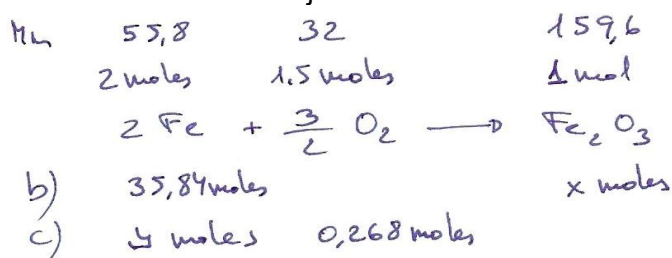 Mm 55,8 32 159,6
2 moles 1.5 moles 1 mol
2 Fe + 3/2 O₂ → Fe₂O₃
b) 35,84 moles x moles
c) y moles 0,268 moles